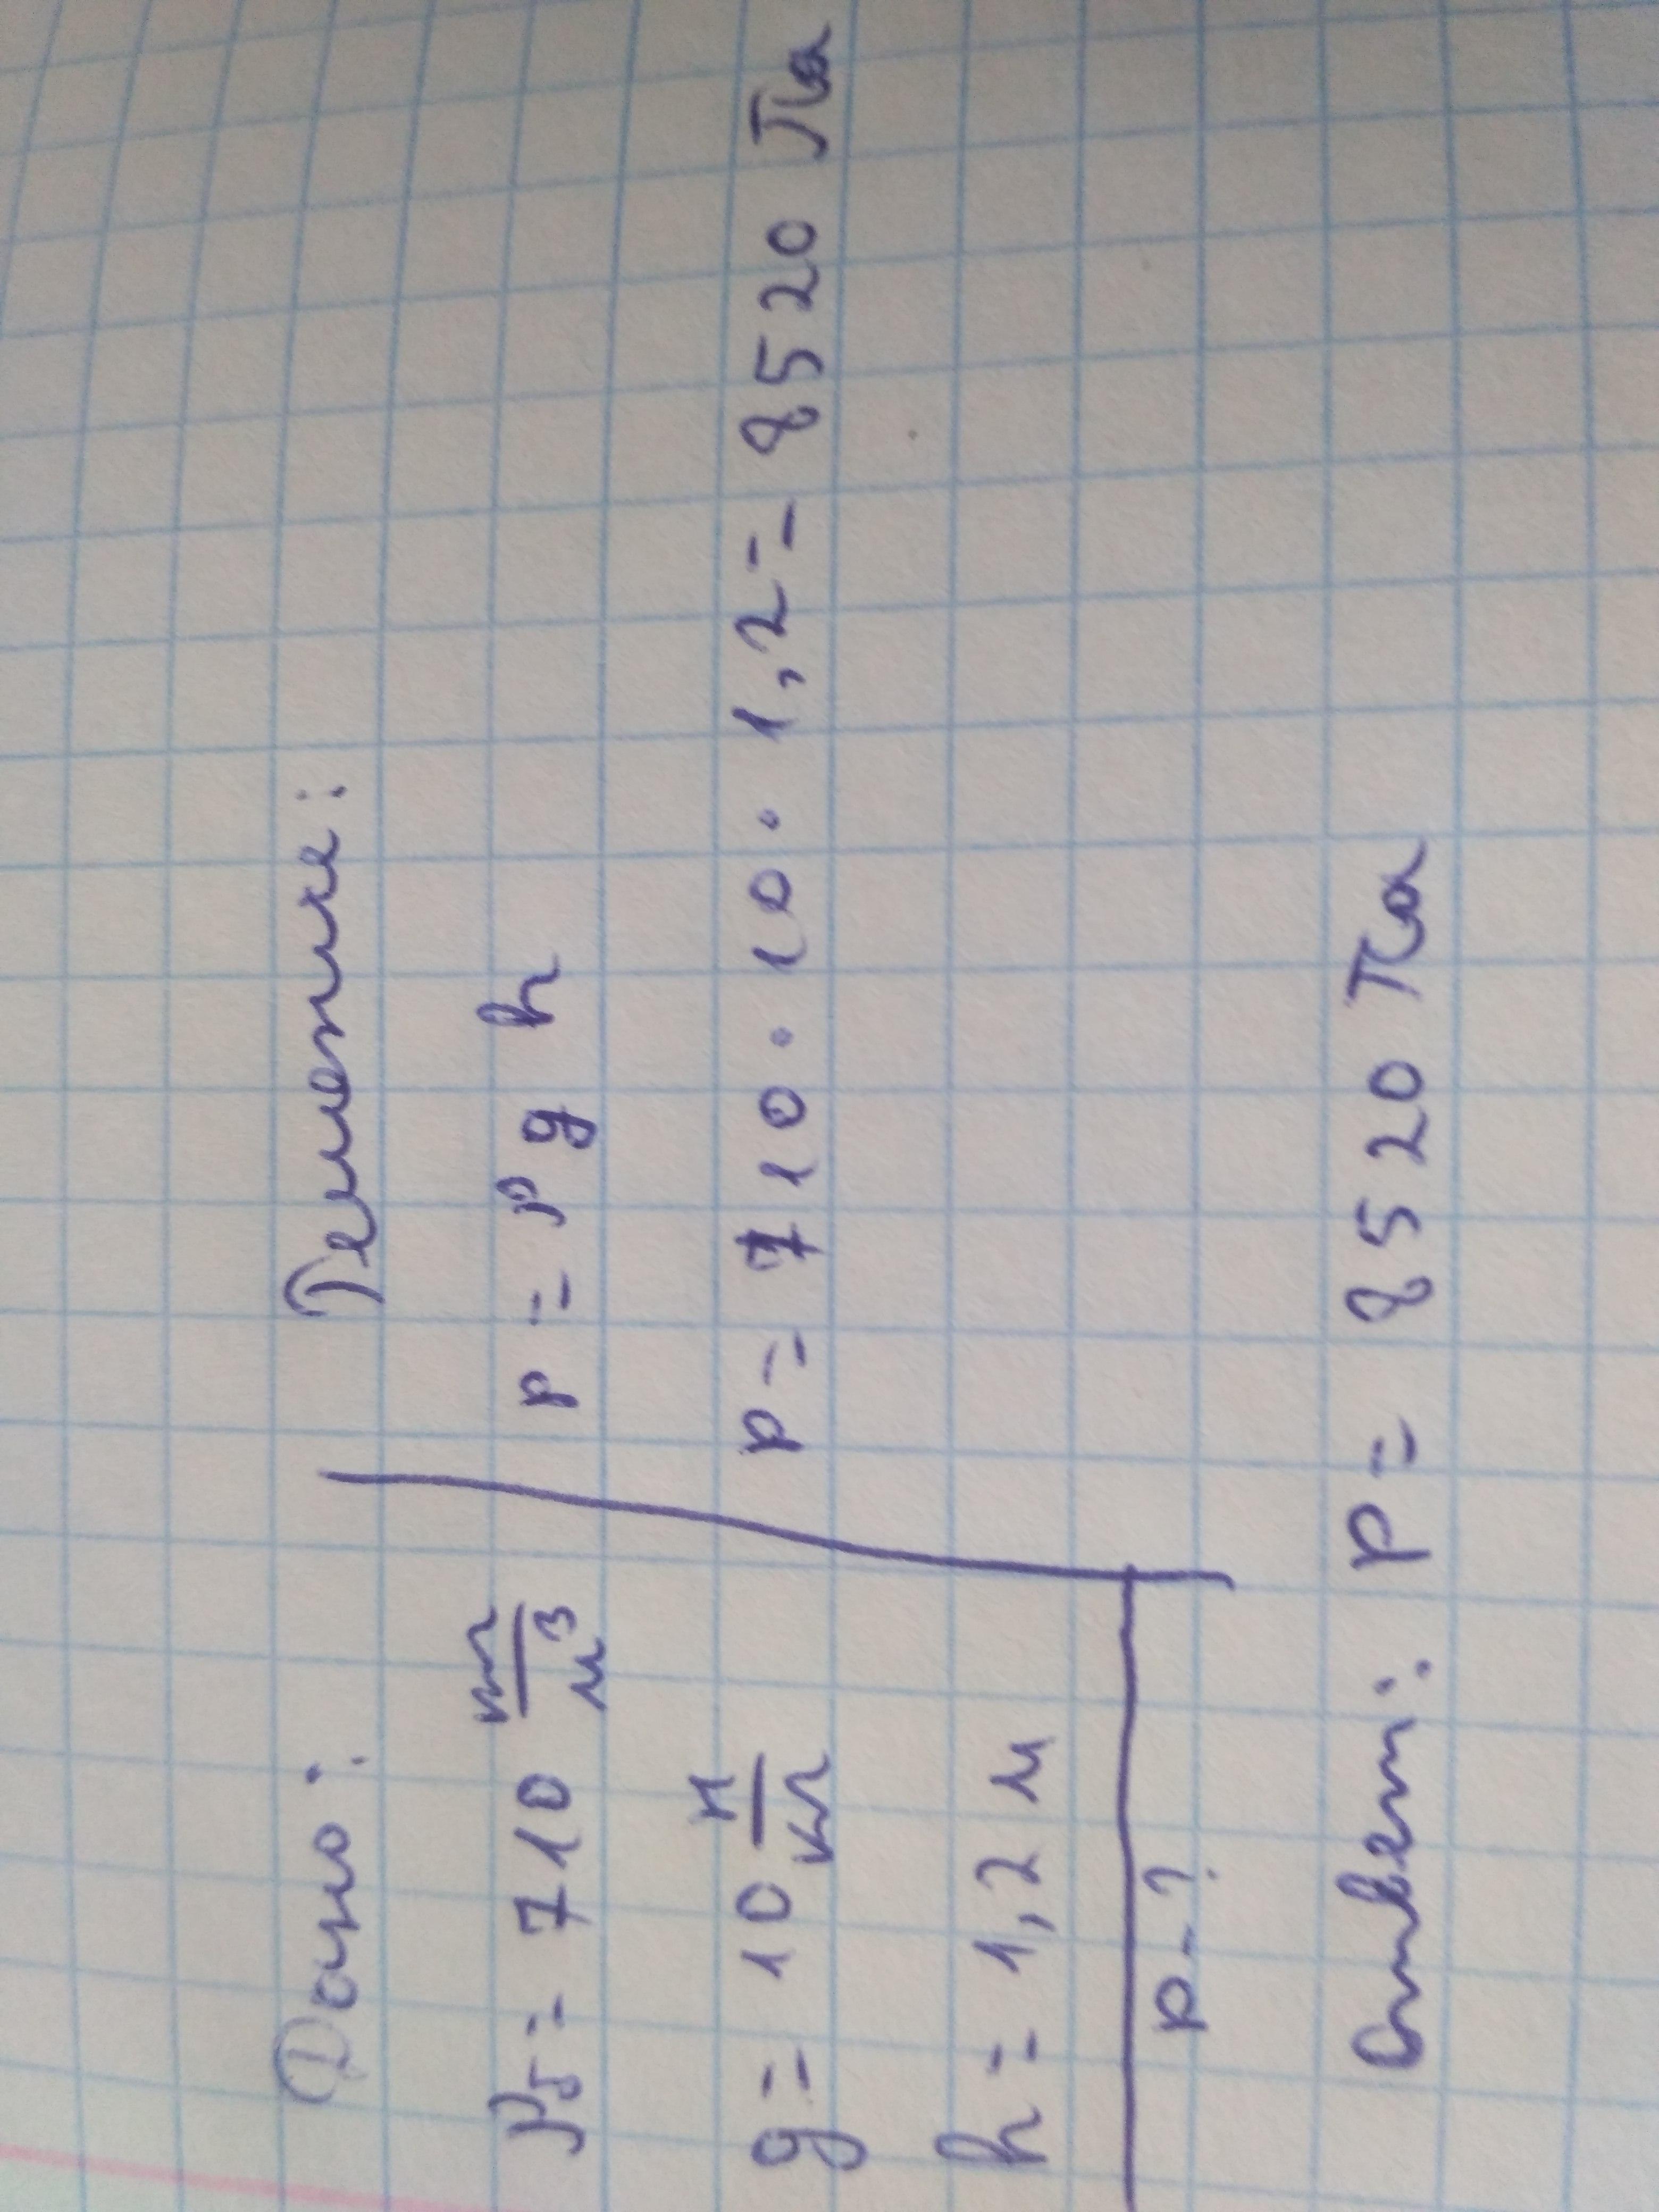 Дано:
ρб = 710 кг/м³
g = 10 н/кг
h = 1,2 м
p - ?
Решение:
p = ρ g h
p = 710 · 10 · 1,2 = 8520 Па
Ответ: p = 8520 Па